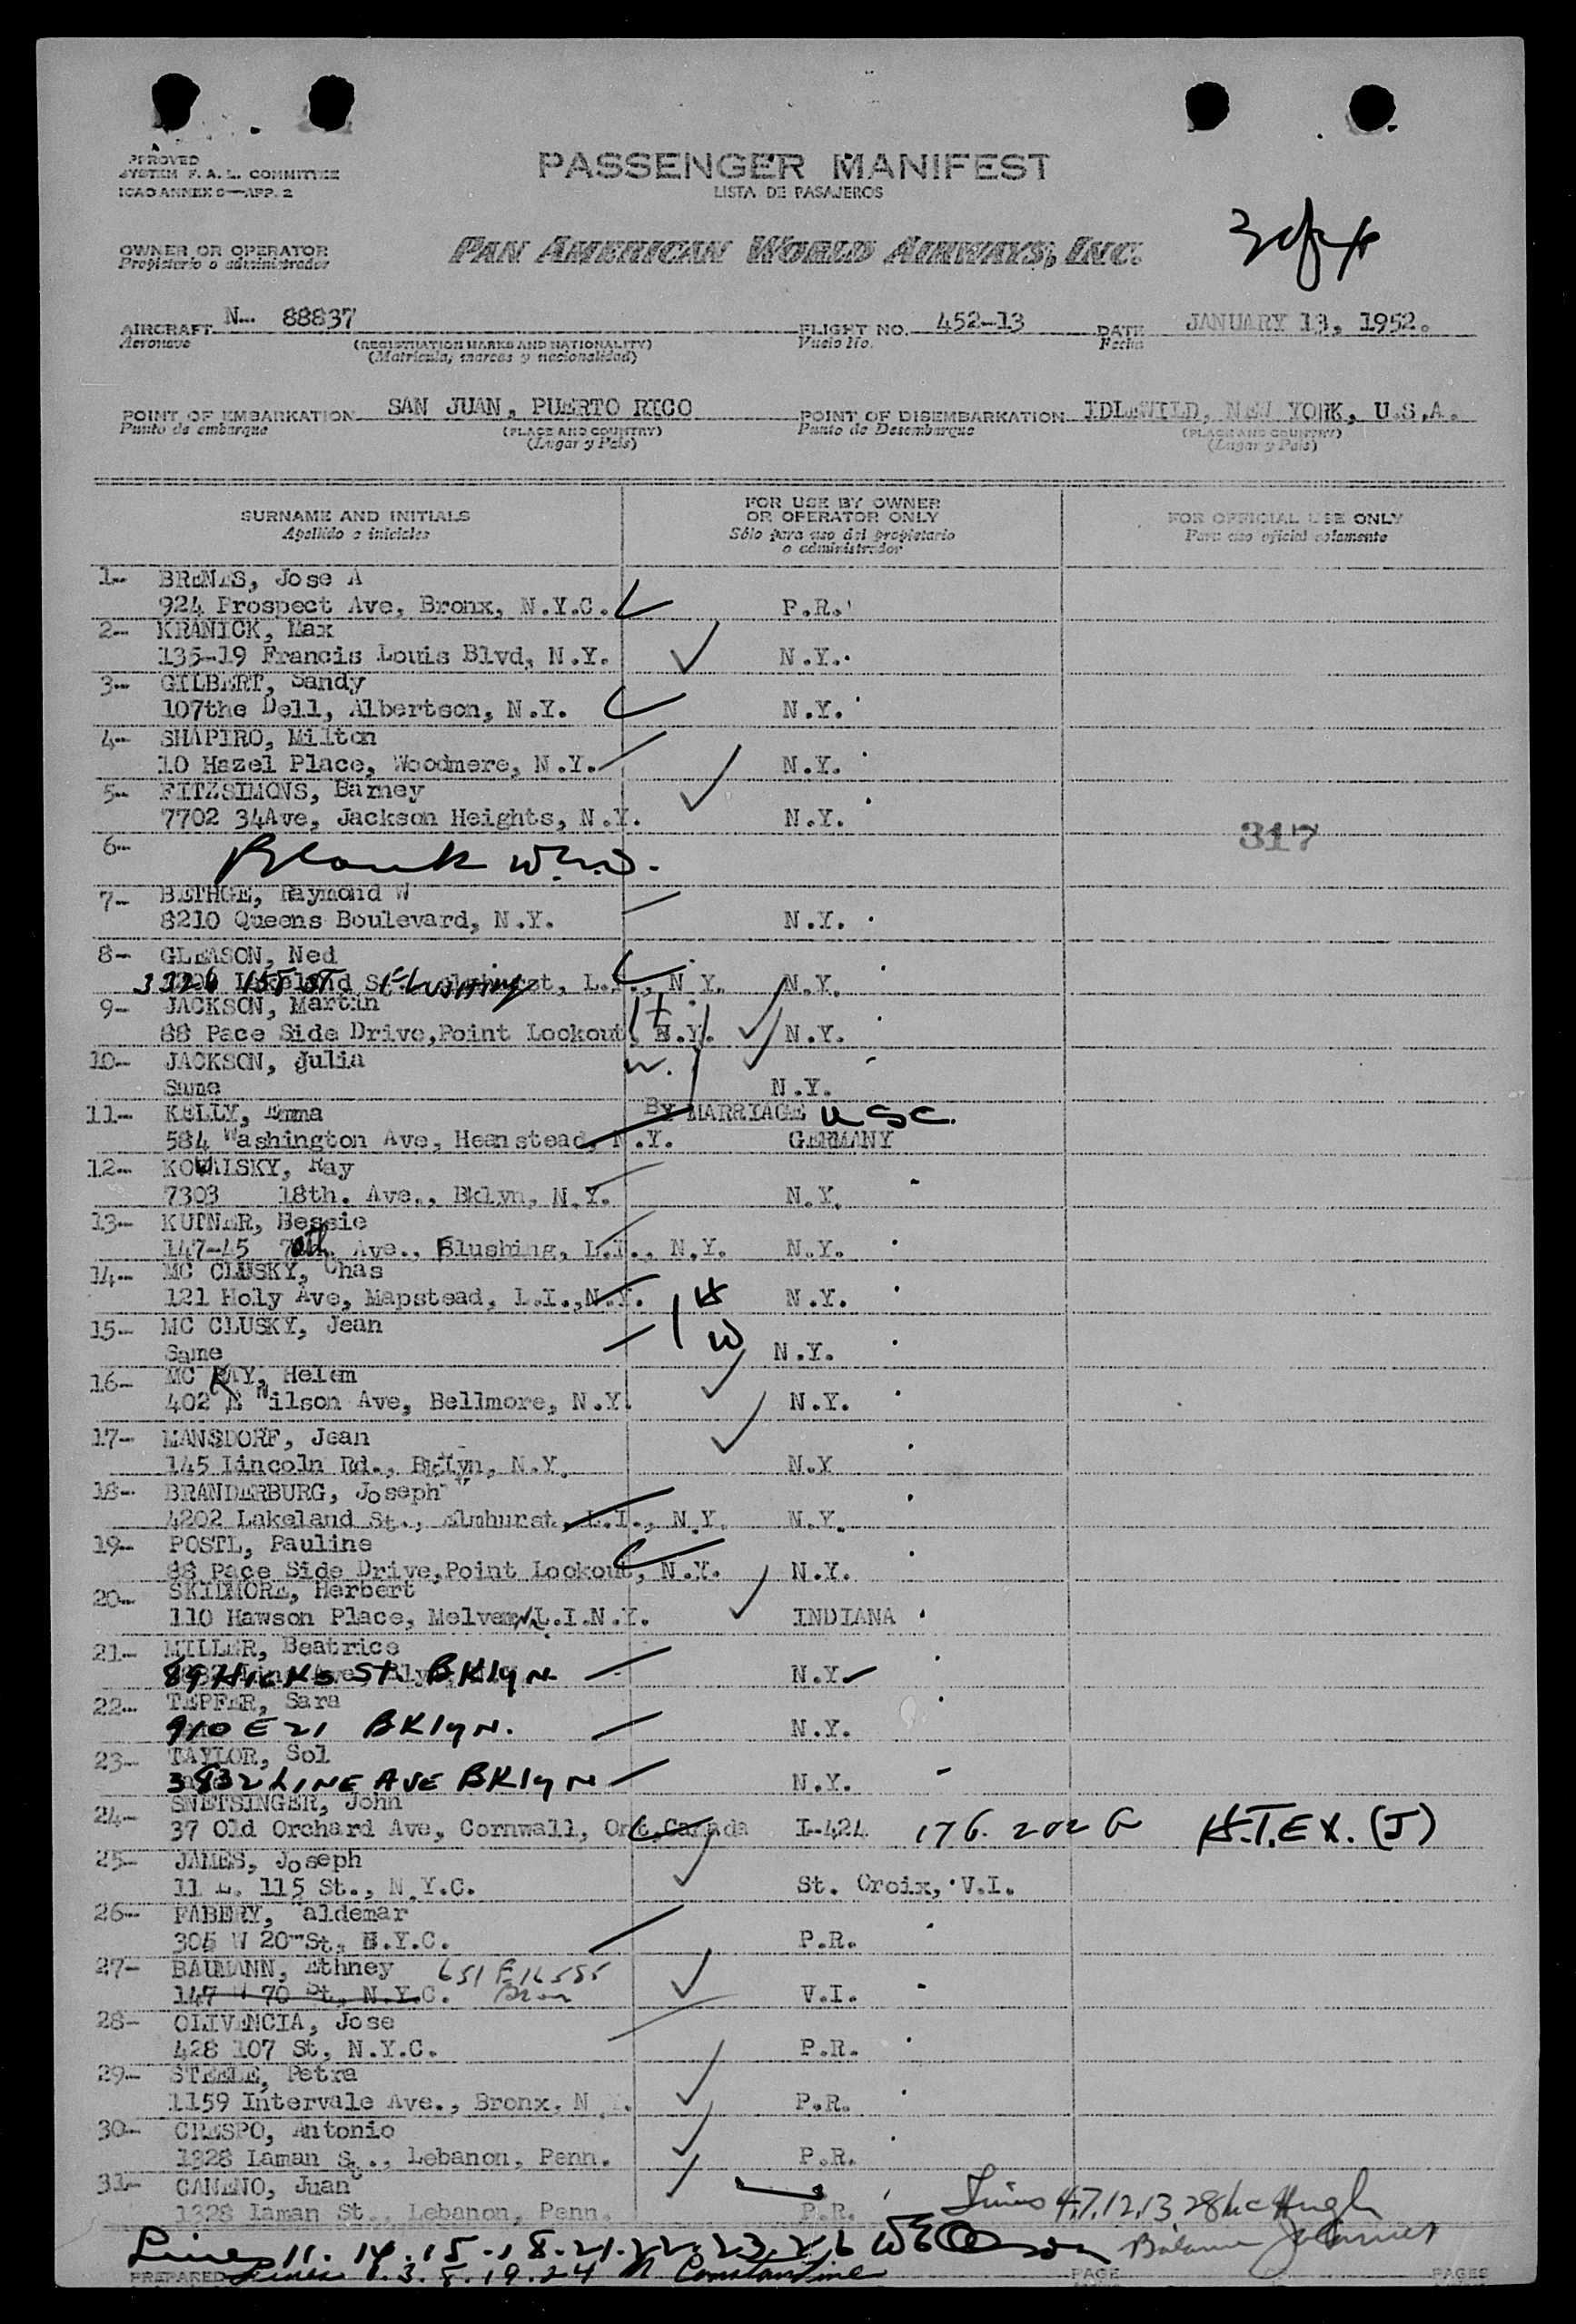 APPROVED
SYSTEM F. A. L. COMMITTEE
ICAO ANNEX 9—APP. 2
PASSENGER MANIFEST
LISTA DE PASAJEROS
3 of 4
OWNER OR OPERATOR
Propietario o administrador
PAN AMERICAN WORLD AIRWAYS, INC.
AIRCRAFT N-- 88837 FLIGHT NO. 452-13 DATE JANUARY 13, 1952.
Aeronave (REGISTRATION MARKS AND NATIONALITY) Vuelo No. Fecha
(Matricula, marcas y nacionalidad)
POINT OF EMBARKATION SAN JUAN, PUERTO RICO POINT OF DISEMBARKATION IDLEWILD, NEW YORK, U.S.A.
Punto de embarque (PLACE AND COUNTRY) Punto de Desembarque (PLACE AND COUNTRY)
(Lugar y País) (Lugar y País)
SURNAME AND INITIALS FOR USE BY OWNER OR OPERATOR ONLY FOR OFFICIAL USE ONLY
Apellido e iniciales Sólo para uso del propietario o administrador Para uso oficial solamente
1-- BRENES, Jose A
924 Prospect Ave, Bronx, N.Y.C. P.R.
2-- KRANICK, Max
135-19 Francis Louis Blvd, N.Y. N.Y.
3-- GILBERT, Sandy
107the Dell, Albertson, N.Y. N.Y.
4-- SHAPIRO, Milton
10 Hazel Place, Woodmere, N.Y. N.Y.
5-- FITZSIMONS, Barney
7702 34Ave, Jackson Heights, N.Y. N.Y.
6-- Blank 317
7-- BETHGE, Raymond W
8210 Queens Boulevard, N.Y. N.Y.
8-- GLEASON, Ned
3326 155 ST FLUSHING L.I., N.Y. N.Y.
9-- JACKSON, Martin H
88 Pace Side Drive,Point Lookout, N.Y. N.Y.
10-- JACKSON, Julia W.
Same N.Y.
11-- KELLY, Emma BY MARRIAGE USC.
584 Washington Ave, Heanstead, N.Y. GERMANY
12-- KOWALSKY, Ray
7303 18th. Ave., Bklyn, N.Y. N.Y.
13-- KUTNER, Bessie
147-45 70th. Ave., Flushing, L.I., N.Y. N.Y.
14-- MC CLUSKY, Chas H
121 Holy Ave, Mapstead, L.I.,N.Y. N.Y.
15-- MC CLUSKY, Jean W
Same N.Y.
16-- MC RAY, Helen
402 Wilson Ave, Bellmore, N.Y. N.Y.
17-- MANSDORF, Jean
145 Lincoln Rd., Bklyn, N.Y. N.Y
18-- BRANDERBURG, Joseph
4202 Lakeland St., Elmhurst, L.I., N.Y. N.Y.
19-- POSTL, Pauline
88 Pace Side Drive,Point Lookout, N.Y. N.Y.
20-- SKIDMORE, Herbert
110 Hawson Place, L.I.N.Y. INDIANA
21-- MILLER, Beatrice
89 HICKS St BKlyN N.Y.
22-- TEPFER, Sara
910 E 21 BKlyN. N.Y.
23-- TAYLOR, Sol
3832 LINE AVE BKlyN N.Y.
24-- SNETSINGER, John
37 Old Orchard Ave, Cornwall, Ont,Canada L-424 176. 202 G H.T.EX. (J)
25-- JAMES, Joseph
11 E. 115 St., N.Y.C. St. Croix, V.I.
26-- FABERY, aldemar
305 W 20 St, N.Y.C. P.R.
27- BAUMANN, Ethney 651 E 165 St
147 W 70 St, N.Y.C. Bron V.I.
28- OLIVENCIA, Jose
428 107 St, N.Y.C. P.R.
29-- STEELE, Petra
1159 Intervale Ave., Bronx, N P.R.
30-- CRESPO, Antonio
1328 Laman S., Lebanon, Penn. P.R.
31-- CAMENO, Juan
1328 Laman St., Lebanon, Penn. P.R.
Lines 4.7.12.13 28 McHugh
Lines 11. 14. 15. 18. 21. 22. 23. 26 Balance
PREPARED Lines 1. 3. 8. 19. 24 N Constantine PAGE PAGES